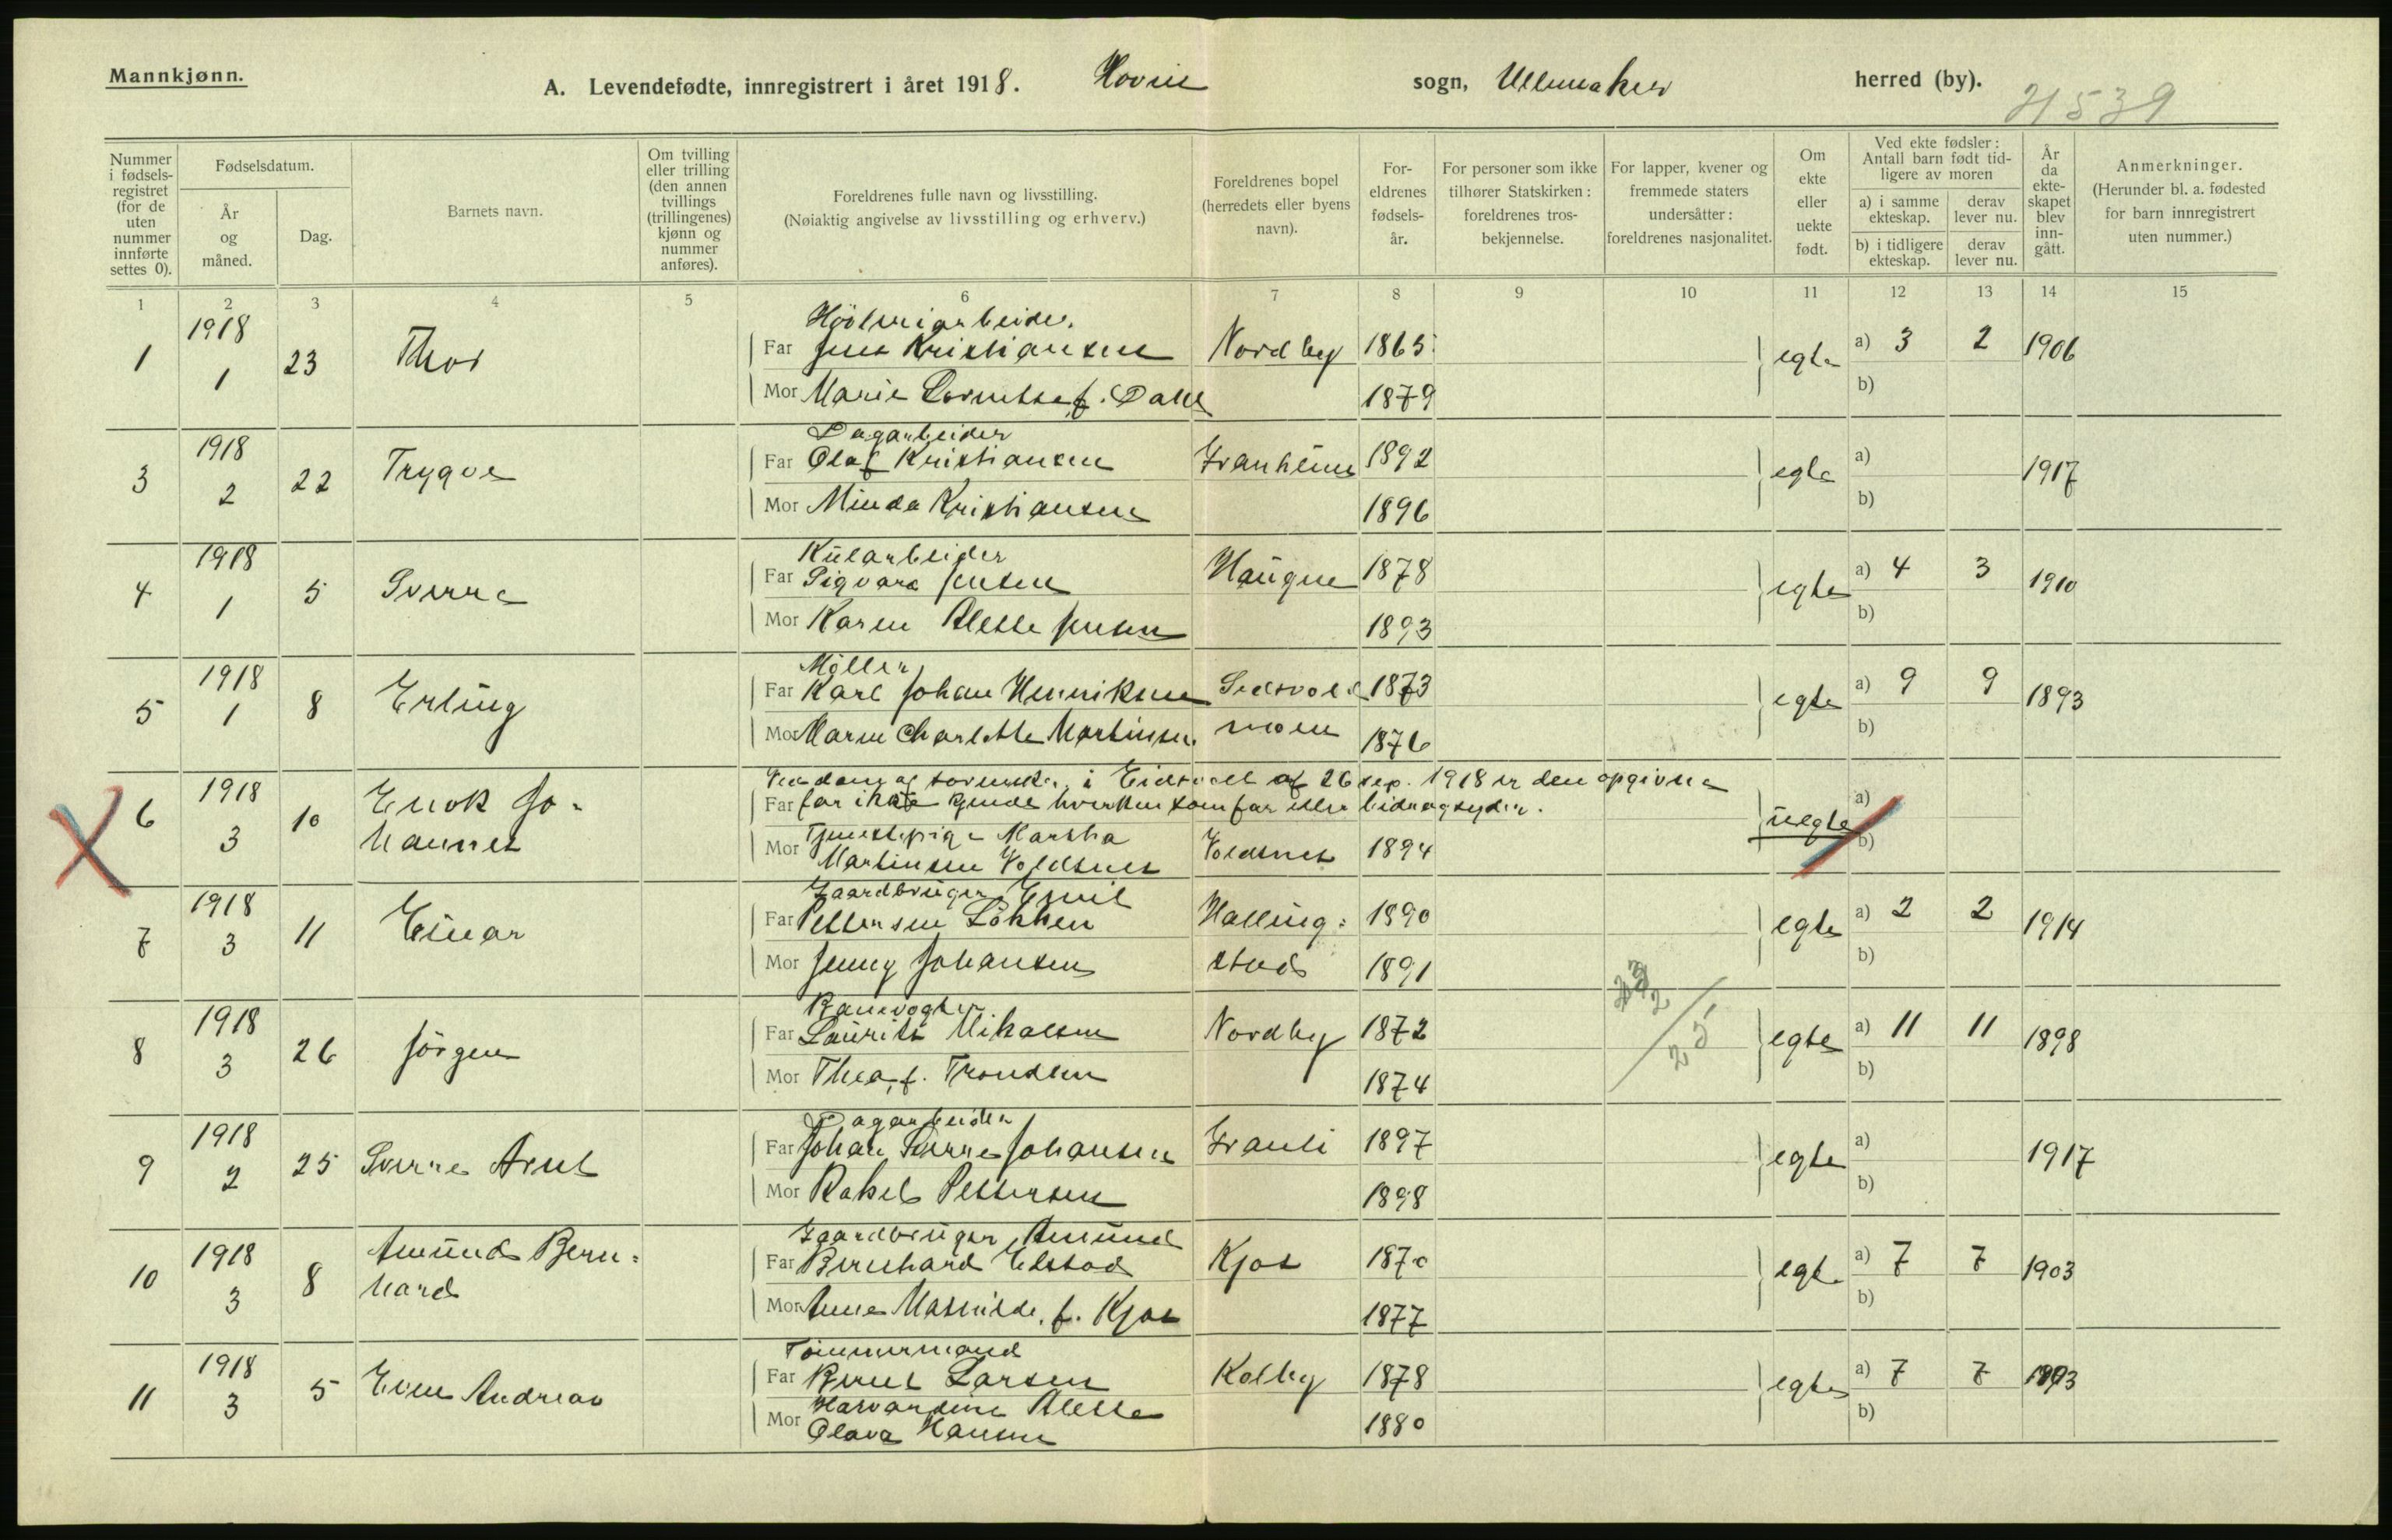 Mannkjønn.
A. Levendefødte, innregistrert i året 1918. Hovin sogn, Ullensaker herred (by).
Nummer i fødsels-registret (for de uten nummer innførte settes 0).
Fødselsdatum.
År og måned.
Dag.
Barnets navn.
Om tvilling eller trilling (den annen tvillings (trillingenes) kjønn og nummer anføres).
Foreldrenes fulle navn og livsstilling.
(Nøiaktig angivelse av livsstilling og erhverv.)
Foreldrenes bopel (herredets eller byens navn).
For-eldrenes fødsels-år.
For personer som ikke tilhører Statskirken: foreldrenes tros-bekjennelse.
For lapper, kvener og fremmede staters undersåtter: foreldrenes nasjonalitet.
Om ekte eller uekte født.
Ved ekte fødsler: Antall barn født tid-ligere av moren
a) i samme ekteskap.
derav lever nu.
b) i tidligere ekteskap.
derav lever nu.
År da ekte-skapet blev inn-gått.
Anmerkninger.
(Herunder bl. a. fødested for barn innregistrert uten nummer.)
1 2 3 4 5 6 7 8 9 10 11 12 13 14 15
Høvleriarbeider
1 1918 1 23 Thor Far Jens Kristiansen Nordby 1865 egte a) 3 2 1906
Mor Marie Lornetse f. Dahl 1879 b)
Dagarbeider
3 1918 2 22 Trygve Far Olaf Kristiansen Granheim 1892 egte a) 1917
Mor Minda Kristiansen 1896 b)
Kularbeider
4 1918 1 5 Sverre Far Sigvara Jensen Haugen 1878 egte a) 4 3 1910
Mor Karen Alette Jensen 1893 b)
Møller
5 1918 1 8 Erling Far Karl Johan Henriksen Sedsvold 1873 egte a) 9 9 1893
Mor Maren Charlotte Martinsen moen 1876 b)
Ved dom af sorenskr. i Eidsvold af 26 sep. 1918 er den opgivne
6 1918 3 10 Enok Jo- Far far ikke kjendt hverken som far eller bidragsyder. uegte a)
hannes Mor Tjenestepige Martha
Martinsen Voldsnes Voldsnes 1894 b)
Gaardbruger Emil
7 1918 3 11 Einar Far Pettersen Løkken Halling= 1890 egte a) 2 2 1914
Mor Jenny Johansen stad 1891 b)
Banevogter
8 1918 3 26 Jørgen Far Laurits Mikalsen Nordby 1872 egte a) 11 11 1898
Mor Thea, f. Trondsen 1874 b)
Dagarbeider
9 1918 2 25 Sverre Arnt Far Johan Sverre Johansen Granli 1897 egte a) 1917
Mor Rakel Pettersen 1898 b)
Gaardbruger Amund
10 1918 3 8 Amund Bern= Far Bernhard Elstad Kjos 1870 egte a) 7 7 1903
hard Mor Anne Mathilde, f. Kjos 1877 b)
Tømmermand
11 1918 3 5 Even Andreas Far Bernt Larsen Kolby 1878 egte a) 7 7
Mor Havardine Alette
Olava Hansen 1880 b)